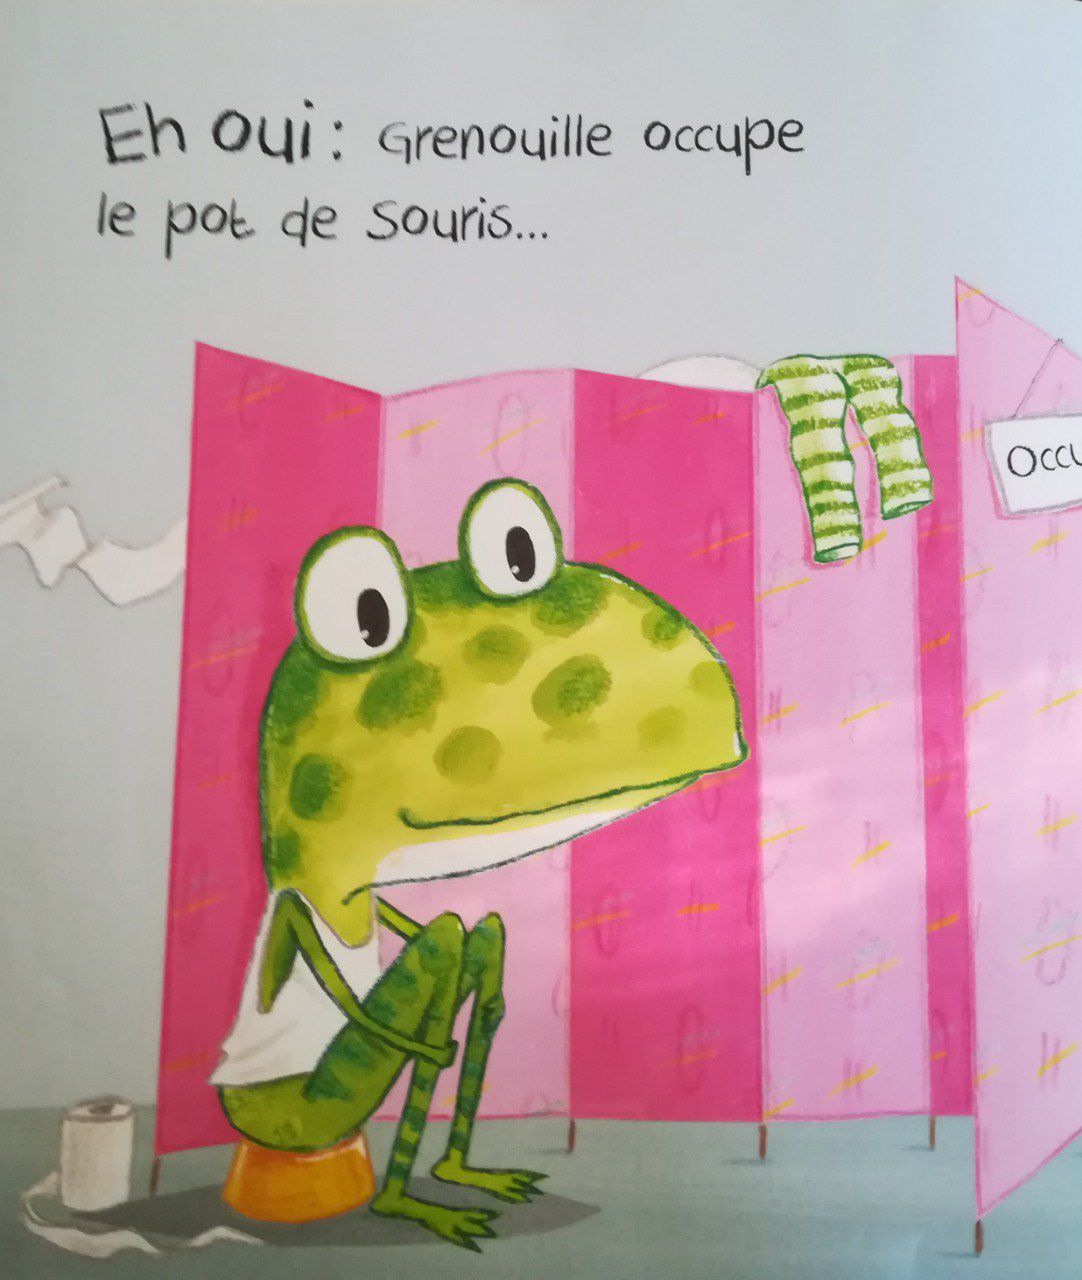 Eh oui : Grenouille occupe
le pot de Souris...
Occu